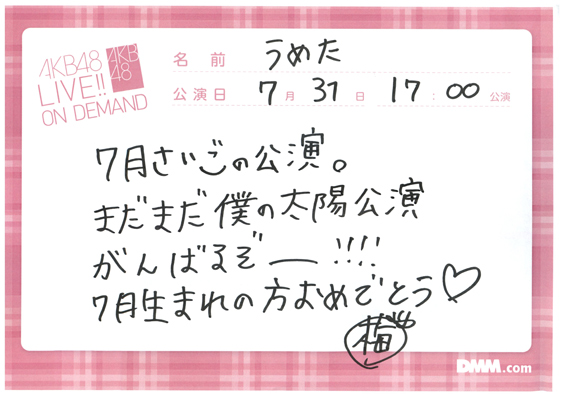 AKB48
LIVE!!
ON DEMAND
AKB
48
名前 うめた
公演日 7月 31日 17:00 公演
7月さいごの公演。
まだまだ僕の太陽公演
がんばるぞー!!!!
7月生まれの方おめでとう♡
梅
DMM.com